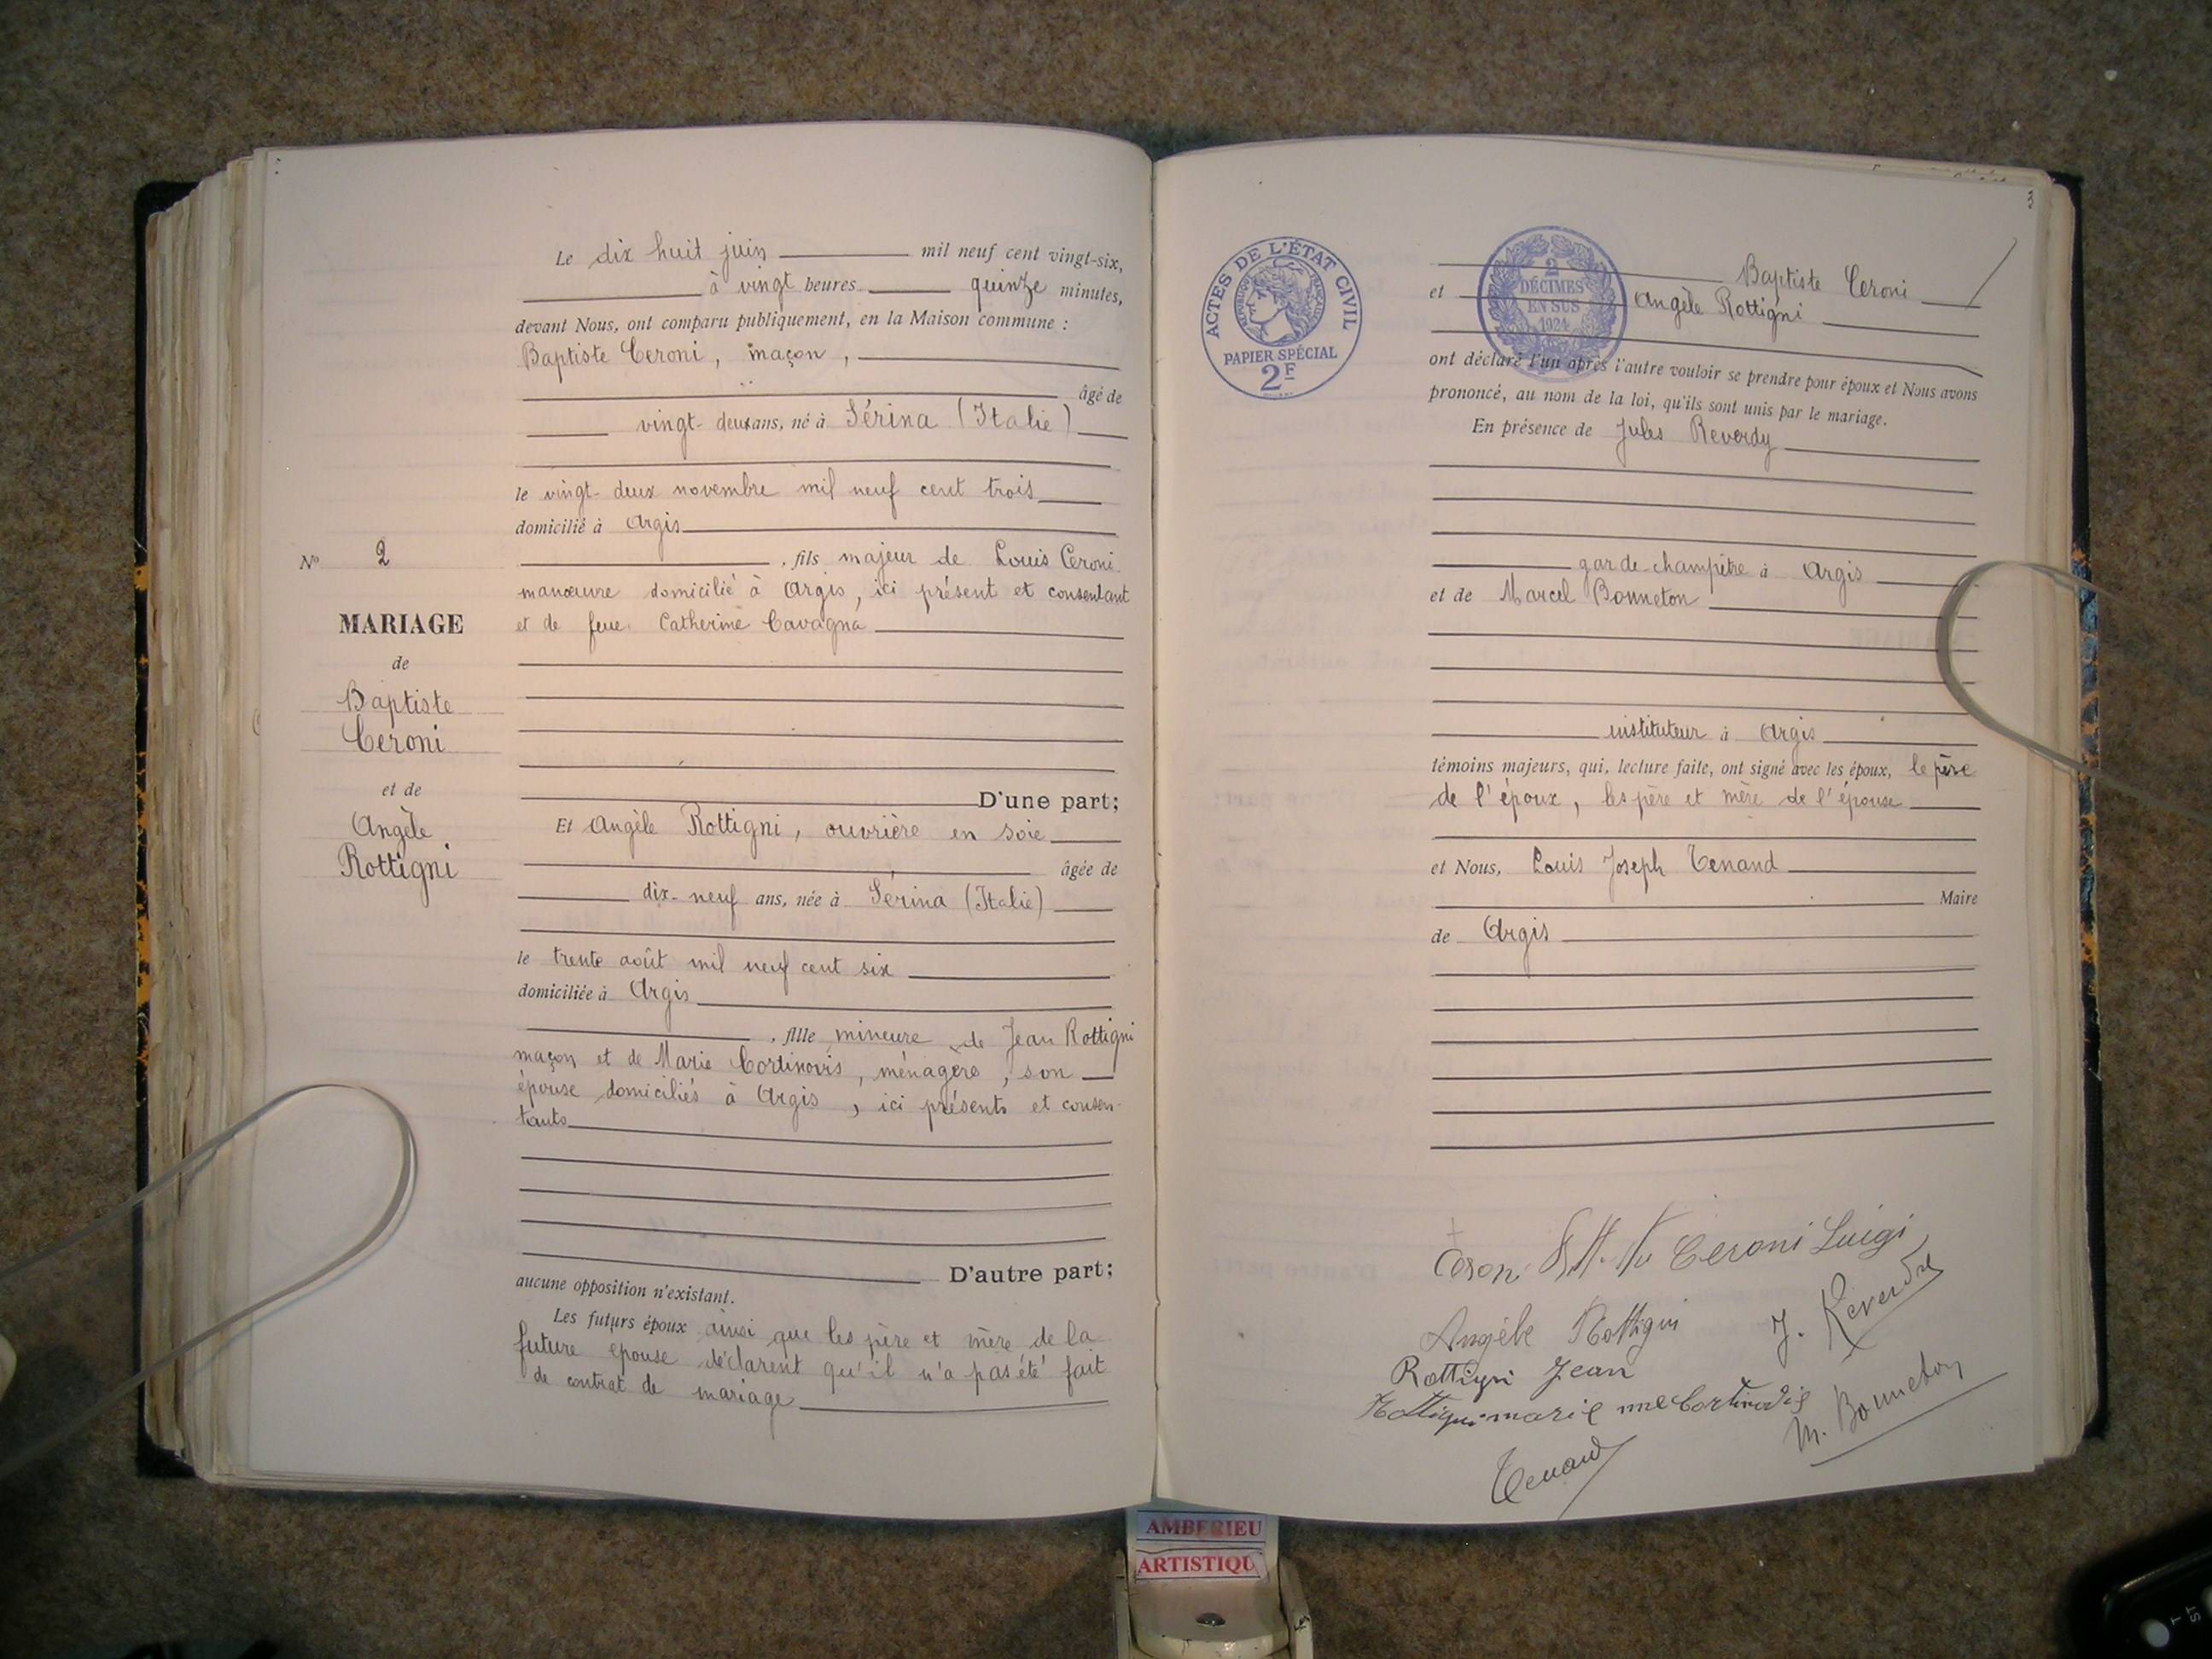 Le dix huit juin mil neuf cent vingt-six,
à vingt heures quinze minutes,
devant Nous, ont comparu publiquement, en la Maison commune :
Baptiste Ceroni, maçon,
âgé de
vingt-deux ans, né à Sérina (Italie)
le vingt-deux novembre mil neuf cent trois
domicilié à Argis
, fils majeur de Louis Ceroni
manœuvre domicilié à Argis, ici présent et consentant
et de feue Catherine Cavagna
D'une part;
Et Angèle Rottigni, ouvrière en soie
âgée de
dix-neuf ans, née à Sérina (Italie)
le trente août mil neuf cent six
domiciliée à Argis
, fille mineure de Jean Rottigni
maçon et de Marie Cortinovis, ménagère, son
épouse domiciliés à Argis, ici présents et consen-
tants
D'autre part;
aucune opposition n'existant.
Les futurs époux ainsi que les père et mère de la
future epouse déclarent qu'il n'a pas été fait
de contrat de mariage
No 2
MARIAGE
de
Baptiste
Ceroni
et de
Angèle
Rottigni
3
ACTES DE L'ÉTAT CIVIL
RÉPUBLIQUE FRANÇAISE
PAPIER SPÉCIAL
2F
2
DÉCIMES
EN SUS
1924
Baptiste Ceroni
et Angèle Rottigni
ont déclaré l'un après l'autre vouloir se prendre pour époux et Nous avons
prononcé, au nom de la loi, qu'ils sont unis par le mariage.
En présence de Jules Reverdy
garde-champêtre à Argis
et de Marcel Bonneton
instituteur à Argis
témoins majeurs, qui, lecture faite, ont signé avec les époux, le père
de l'époux, les père et mère de l'épouse
et Nous, Louis Joseph Tenand
Maire
de Argis
Ceroni Luigi
Angèle Rottigni
J. Reverdy
Rottigni Jean
Rottigni marie née Cortinovis
M. Bonneton
Tenand
AMBERIEU
ARTISTIQU